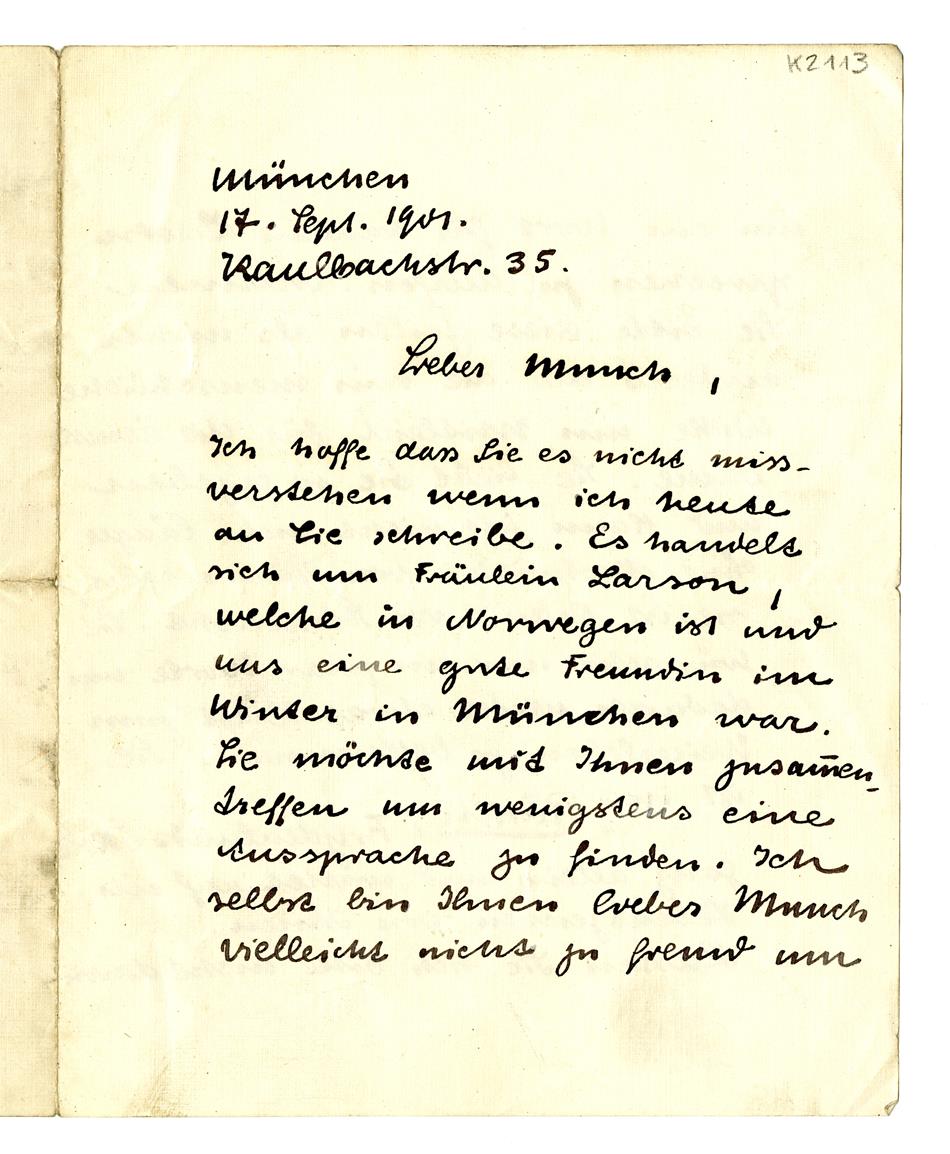 K2113
München
17. Sept. 1901.
Kaulbachstr. 35.
Lieber Munch,
Ich hoffe dass Sie es nicht miss-
verstehen wenn ich heute
an Sie schreibe. Es handelt
sich um Fräulein Larson,
welche in Norwegen ist und
uns eine gute Freundin im
Winter in München war.
Sie möchte mit Ihnen zusam̄en-
treffen um wenigstens eine
Aussprache zu finden. Ich
selbst bin Ihnen lieber Munch
vielleicht nicht zu fremd um